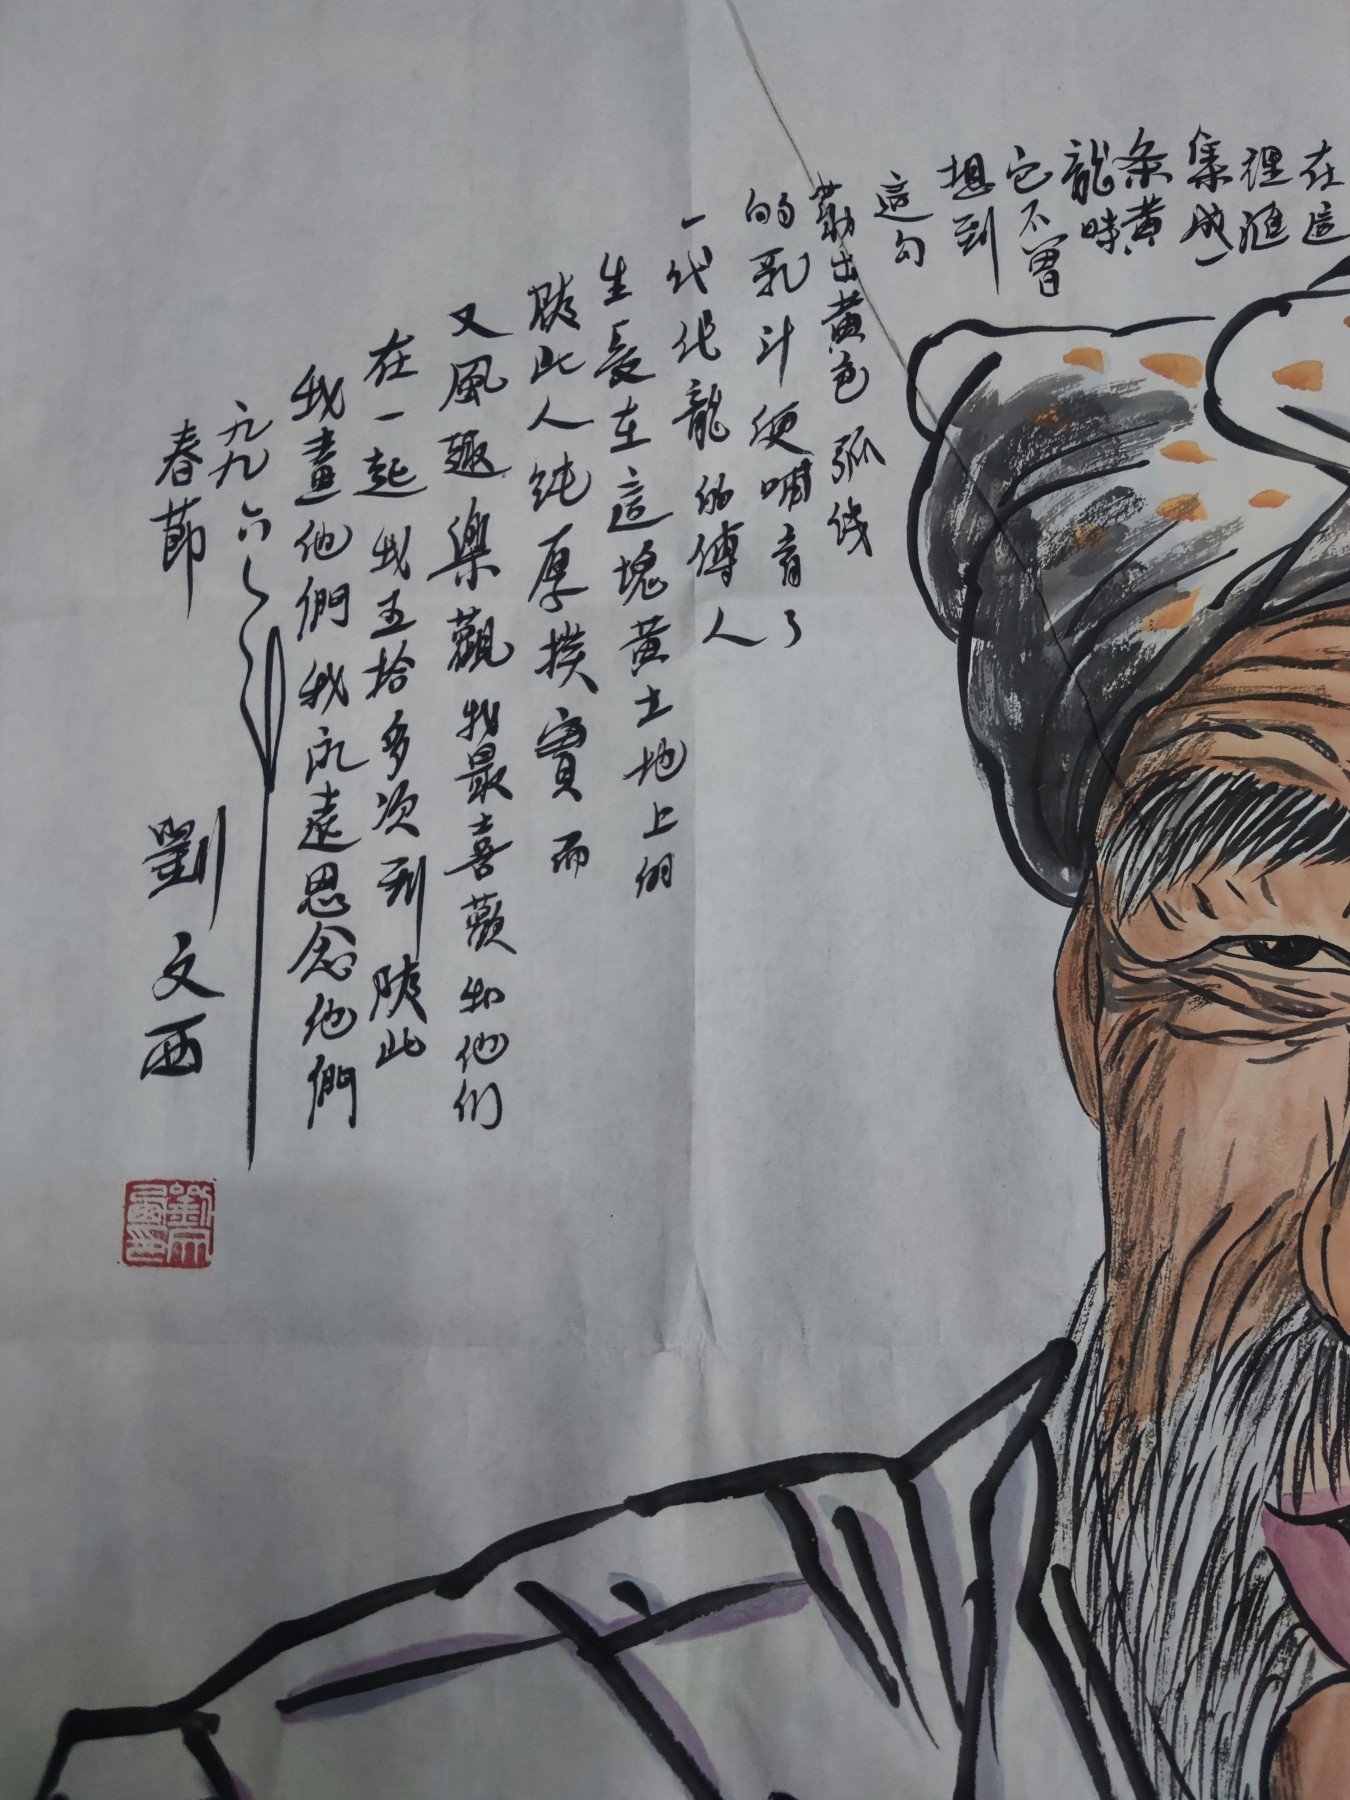 在這
裡匯
集成一
条黄
龍時
它不曾
想到
這勾
勒出黄色弧线
的乳汁便哺育了
一代代龍的傳人
生長在這塊黄土地上的
陕北人纯厚撲實而
又風趣樂觀我最喜歡和他们
在一起我五拾多次到陕北
我畫他們我永遠思念他們
一九九六
春節
劉文西